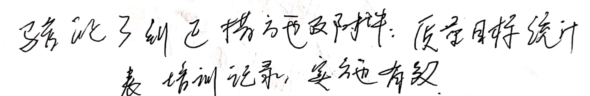 验证了纠正措施及附件：质量目标统计
表 培训记录，实施有效